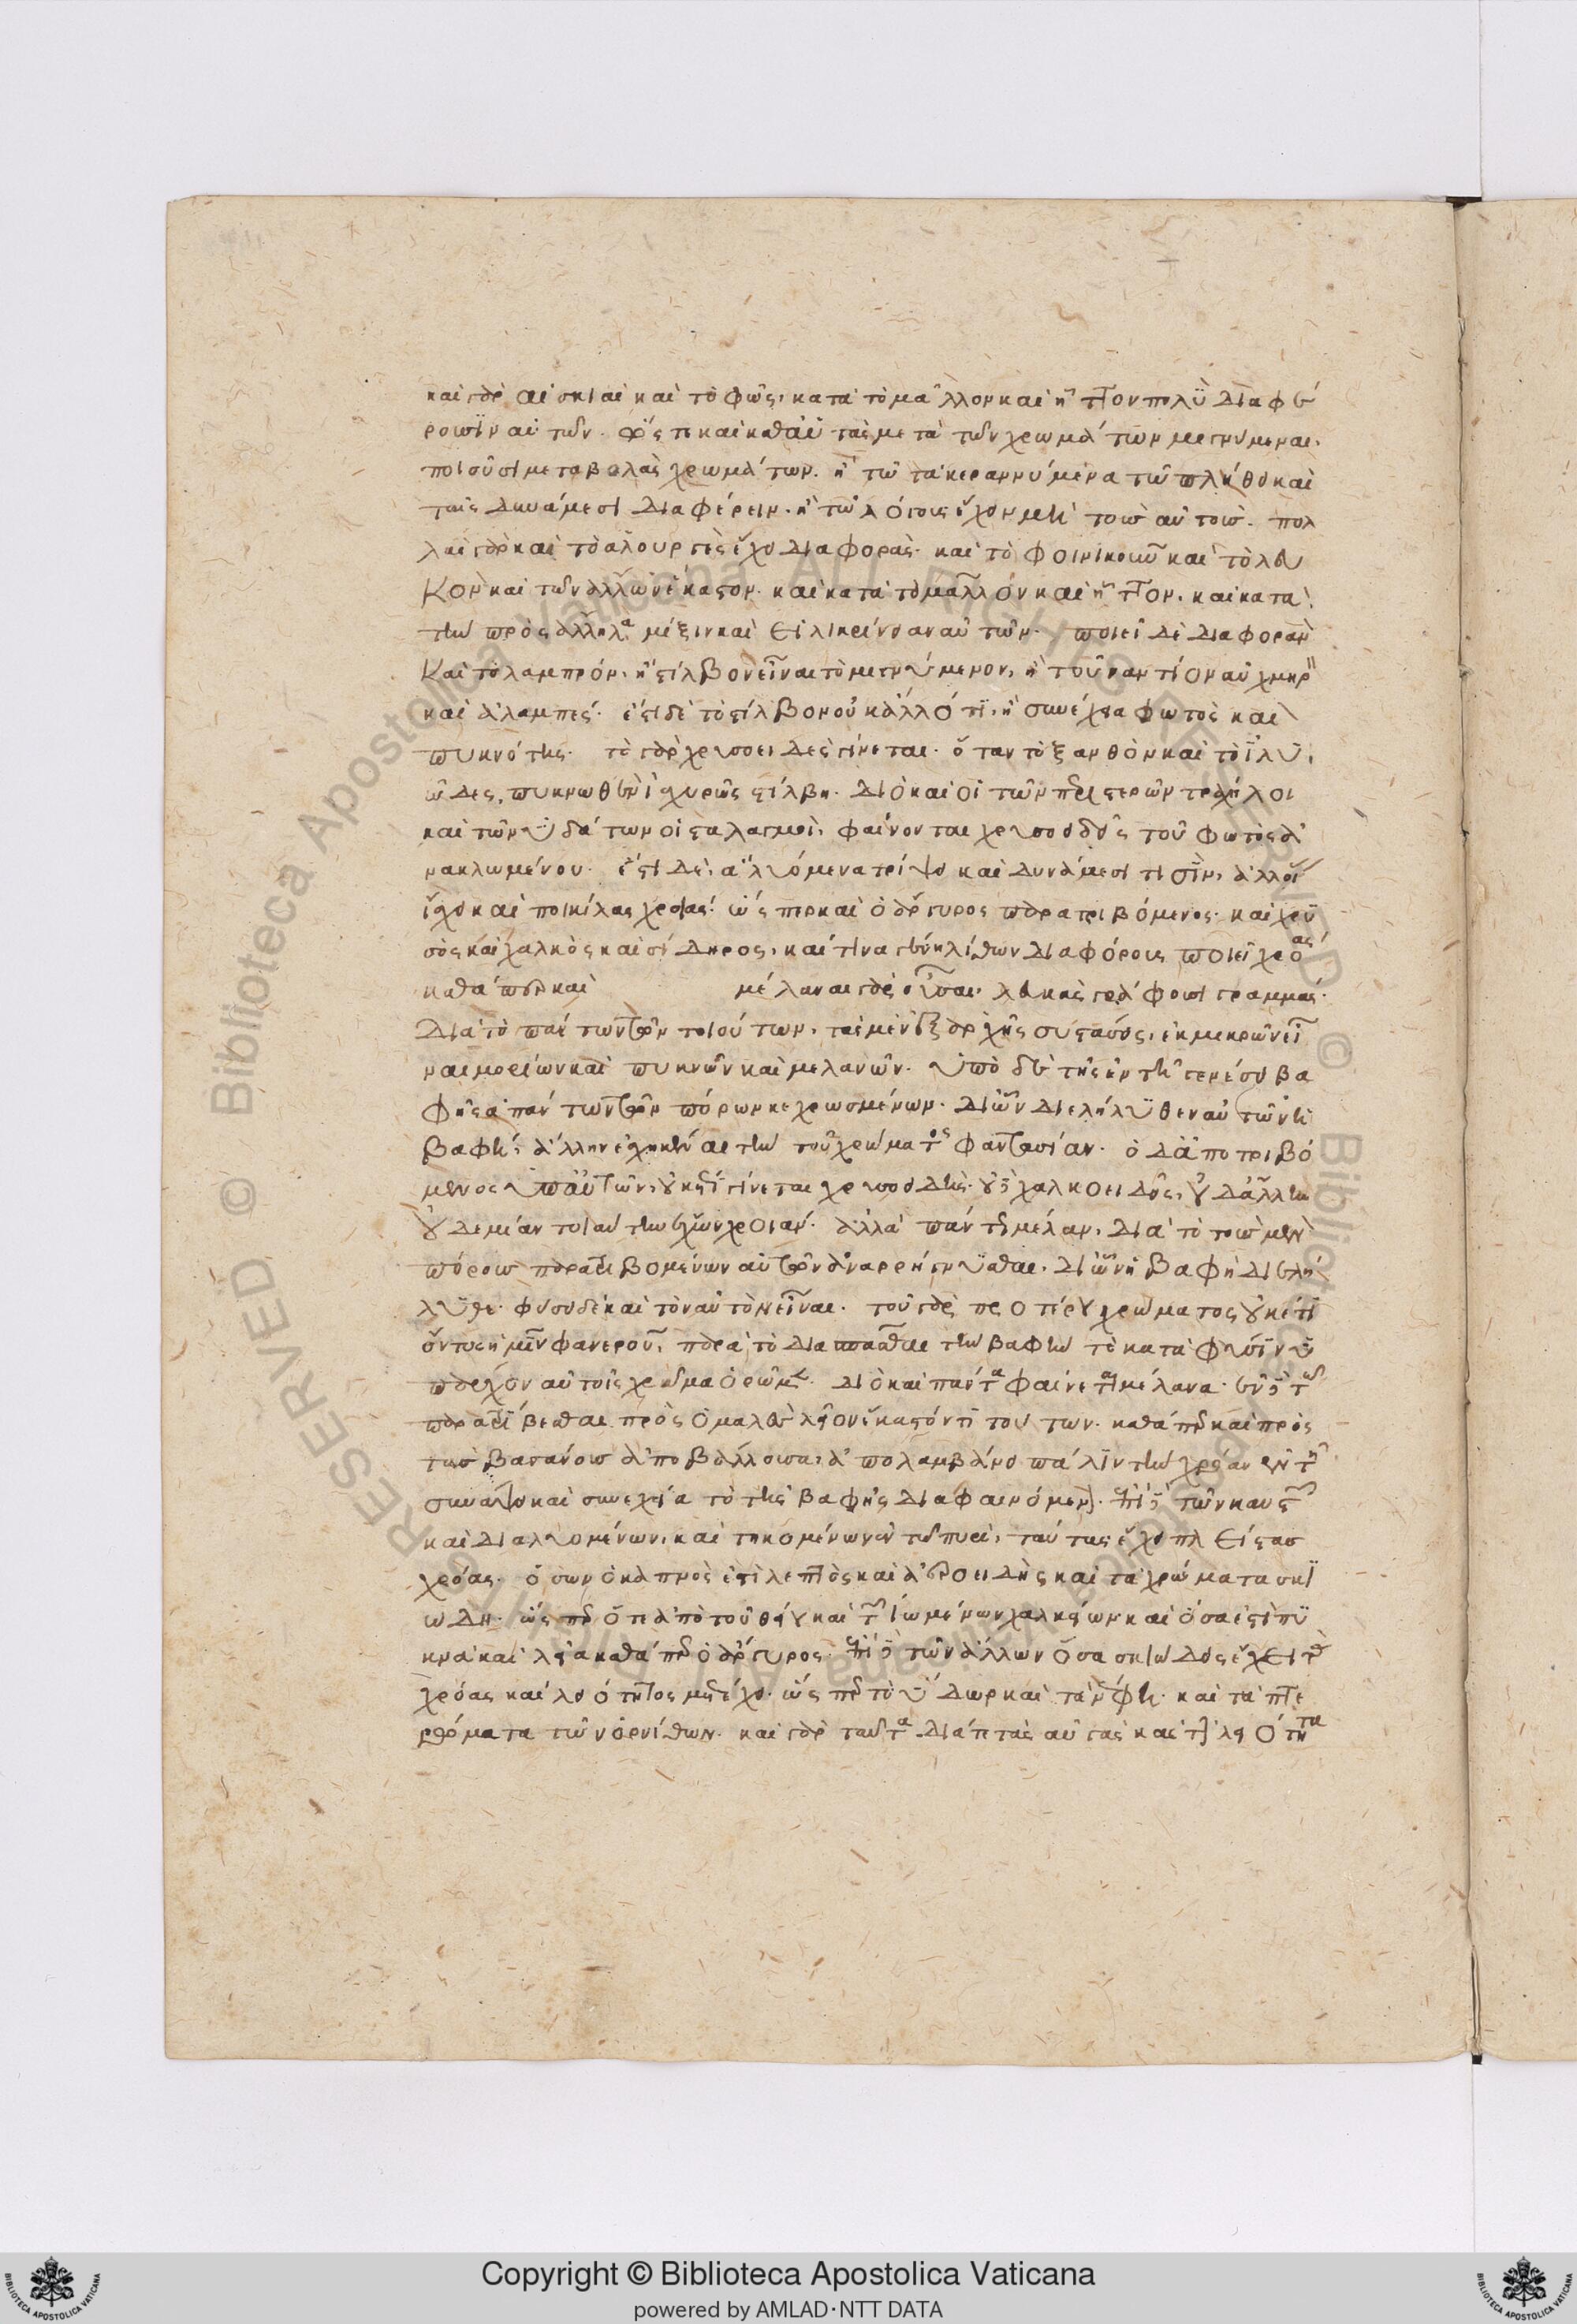 καὶ γὰρ αἱ σκιαὶ καὶ τὸ φῶς, κατὰ τὸ μᾶλλον καὶ ἧττον πολὺ διαφέ
ρουσιν αὐτῶν. ὥς τε καὶ καθ' αὑτὰς μετὰ τῶν χρωμάτων μιγνύμεναι,
ποιοῦσι μεταβολὰς χρωμάτων. ἢ τῶ τὰ κεραννύμενα τῶ πλήθει καὶ
ταῖς δυνάμεσι διαφέρειν. ἢ τῶ λόγους ἔχειν μὴ τοὺς αὐτούς. πολ
λὰς γὰρ καὶ τὸ ἁλουργὲς ἔχει διαφοράς. καὶ τὸ φοινικιοῦν καὶ τὸ λευ
κὸν καὶ τῶν ἄλλων ἕκαστον. καὶ κατὰ τὸ μᾶλλον καὶ ἧττον. καὶ κατὰ
τὴν πρὸς ἄλληλα μίξιν καὶ εἰλικρίνειαν αὐτῶν. ποιεῖ δὲ διαφορὰν
καὶ τὸ λαμπρὸν, ἢ στίλβον εἶναι τὸ μιγνύμενον, ἢ τοὐναντίον αὐχμηρὸν
καὶ ἀλαμπές. ἔστι δὲ τὸ στίλβον οὐκ ἄλλό τι, ἢ συνέχεια φωτὸς καὶ
πυκνότης. τὸ γὰρ χρυσοειδὲς γίνεται. ὅταν τὸ ξανθὸν καὶ τὸ ἡλι
ῶδες, πυκνωθὲν ἰσχυρῶς στίλβη. διὸ καὶ οἱ τῶν περιστερῶν τράχηλοι
καὶ τῶν ὑδάτων οἱ σταλαγμοὶ, φαίνονται χρυσοειδεῖς τοῦ φωτὸς ἀ
νακλωμένου. ἔστι δὲ, ἃ λυόμενα τρίψει καὶ δυνάμεσί τισιν, ἀλλοί
ἴσχει καὶ ποικίλας χρόας. ὥς περ καὶ ὁ ἄργυρος παρατριβόμενος. καὶ χρυ
σὸς καὶ χαλκὸς καὶ σίδηρος, καί τινα γένη λίθων διαφόρους ποιεῖ χρόας
καθάπερ καὶ μέλαιναι γὰρ οὖσαι, λευκὰς γράφουσι γραμμάς.
διὰ τὸ πάντων τῶν τοιούτων, τὰς μὲν ἐξ ἀρχῆς συστάσεις, ἐκ μικρῶν εἶ
ναι μορίων καὶ πυκνῶν καὶ μελανῶν. ὑπὸ δὲ τῆς ἐν τῇ γενέσει βα
φῆς ἁπάντων τῶν πόρων κεχρωσμένων. δι' ὧν διελήλυθεν αὐτῶν ἡ
βαφή, ἄλλην εἰληφέναι τὴν τοῦ χρώματος φαντασίαν. ὁ δ' ἀποτριβό
μενος ὑπ' αὐτῶν, οὐκέτι γίνεται χρυσοειδής. οὐδὲ χαλκοειδὴς, οὐδ' ἄλλην
οὐδεμίαν τοιαύτην ἔχων χροιάν. ἀλλὰ πάντη μέλαν, διὰ τὸ τοὺς μὲν
πόρους παρατριβομένων αὐτῶν ἀναρρήγνυσθαι. δι' ὧν ἡ βαφὴ διελή
λυθε. φύσει δὲ καὶ τὸν αὐτὸν εἶναι. τοῦ γὰρ προτέρου χρώματος οὐκέτι
ὄντος ἡμῖν φανεροῦ, παρὰ τὸ διασπᾶσθαι τὴν βαφὴν τὸ κατὰ φύσιν ὑ
πάρχον αὐτοῖς χρῶμα ὁρῶμεν. διὸ καὶ πάντα φαίνεται μέλανα. ἐν δὲ τῶ
παρατρίβεσθαι πρὸς ὁμαλὲς λεῖον ἕκαστόν τι τούτων. καθάπερ καὶ πρὸς
τὰς βασάνους ἀποβάλλουσι, ἀπολαμβάνει πάλιν τὴν χρόαν ἐν τῇ
συναφῇ καὶ συνεχεία τὸ τῆς βαφῆς διαφαινόμενον. ἐπὶ δὲ τῶν καυστῶν
καὶ διαλυομένων, καὶ τηκομένων ἐν τῶ πυρὶ, ταύτας ἔχει πλείστας
χρόας. ὅσων ὁ καπνός ἐστι λεπτὸς καὶ ἀεροειδὴς καὶ τὰ χρώματα σκι
ώδη. ὥς περ ὅ τε ἀπὸ τοῦ θείου καὶ τῶν ἰωμένων χαλκείων καὶ ὅσα ἐστὶ πυ
κνὰ καὶ λεῖα καθάπερ ὁ ἄργυρος. ἐπὶ δὲ τῶν ἄλλων ὅσα σκιώδεις ἔχει τὰς
χρόας καὶ λειότητος μετέχει. ὥς περ τὸ ὕδωρ καὶ τὰ νέφη. καὶ τὰ πτε
ρώματα τῶν ὀρνίθων. καὶ γὰρ ταῦτα διά τε τὰς αὐγὰς καὶ τὴν λειότητα